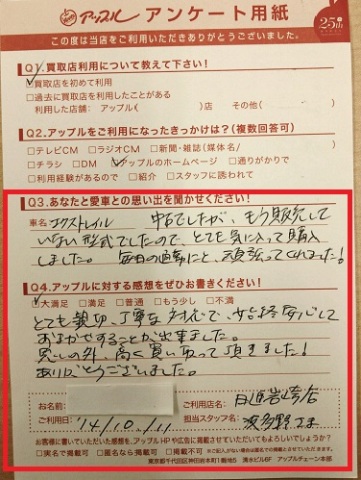 アップル アンケート用紙 25th
この度は当店をご利用いただきありがとうございました。
Q1.買取店利用について教えて下さい!
☑買取店を初めて利用
□過去に買取店を利用したことがある
利用した店舗:アップル( )店 その他( )
Q2.アップルをご利用になったきっかけは?(複数回答可)
□テレビCM □ラジオCM □新聞・雑誌(媒体名/ )
□チラシ □DM ☑アップルのホームページ □通りがかりで
□利用経験があるので □紹介 □スタッフに誘われて
Q3.あなたと愛車との思い出を聞かせください!
車名 エクストレイル 中古でしたが、もう販売して
いない型式でしたので、とても気に入って購入
しました。 毎日の通勤にと、頑張ってくれました!
Q4.アップルに対する感想をぜひお書きください!
☑大満足 □満足 □普通 □もう少し □不満
とても親切、丁寧な対応で、安心して
おまかせすることが出来ました。
思いの外、高く買い取って頂きました!
ありがとうございました。
お名前: ご利用店名:
ご利用日: '14/10/11 担当スタッフ名: 波多野さま
お客様に書いていただいた感想を、アップルHPや広告に掲載させていただいてもよろしいでしょうか?
□実名で掲載可 □匿名なら掲載可 □掲載不可
東京都千代田区神田岩本町1番地5 清水ビル6F アップルチェーン本部